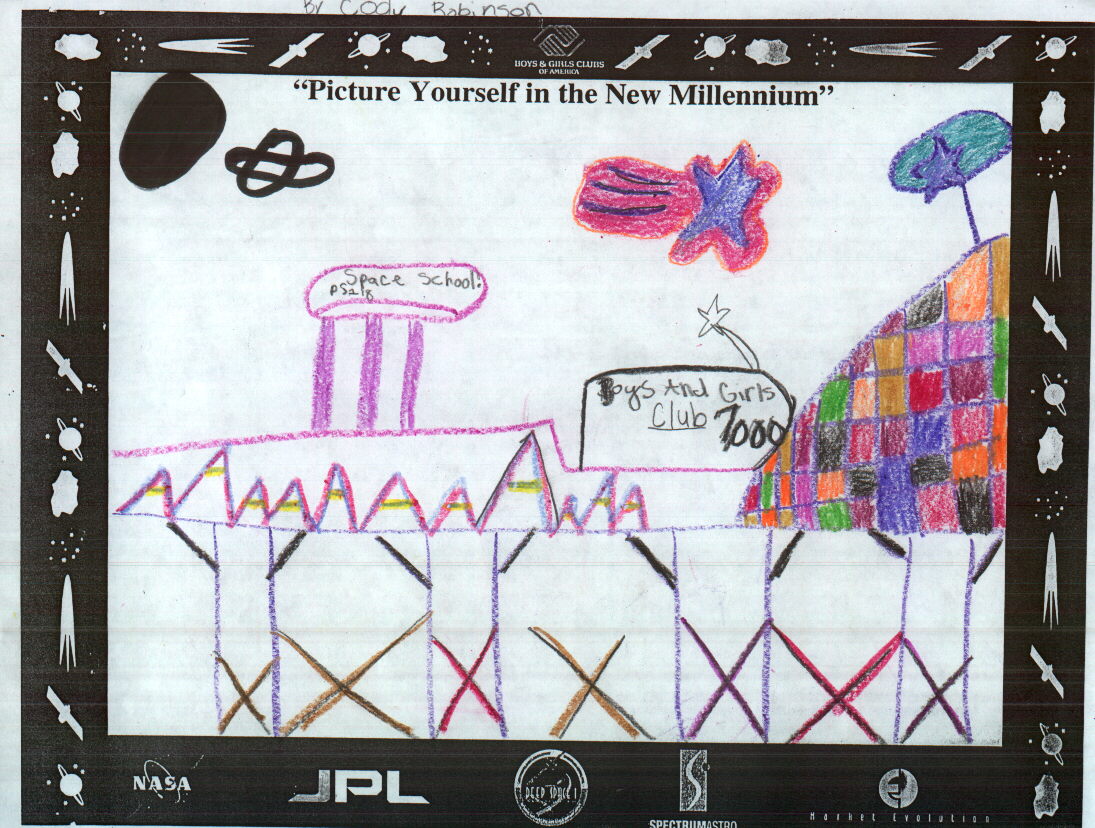 By Cody Robinson
BOYS & GIRLS CLUBS
OF AMERICA
“Picture Yourself in the New Millennium”
Space School!
Boys And Girls
Club 7000
NASA
JPL
DEEP SPACE 1
SPECTRUMASTRO
Market Evolution